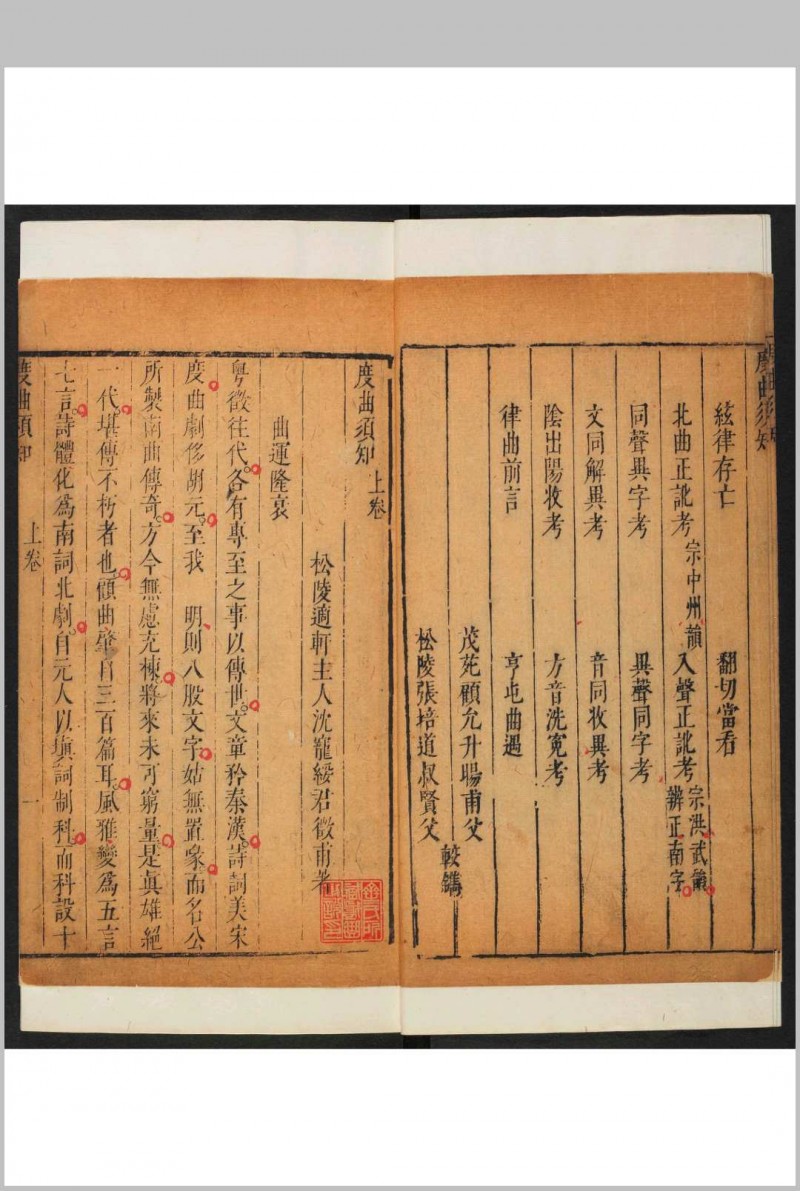 度曲須知
絃律存亡　翻切當看
北曲正訛考 宗中州韻　入聲正訛考 宗洪武韻 辨正南字
同聲異字考　異聲同字考
文同解異考　音同收異考
陰出陽收考　方音洗冤考
律曲前言　亨屯曲遇
茂苑顧允升暘甫父
松陵張培道叔賢父
較鐫
度曲須知 上卷
松陵適軒主人沈寵綏君徵甫著
曲運隆衰
粵徵往代各有專至之事以傳世文章矜秦漢詩詞美宋
度曲劇侈胡元至我　明則八股文字姑無置喙而名公
所製南曲傳奇方今無慮充棟將來未可窮量是真雄絕
一代堪傳不朽者也顧曲肇自三百篇耳風雅變為五言
七言詩體化為南詞北劇自元人以填詞制科而科設十
度曲須知　上卷　一